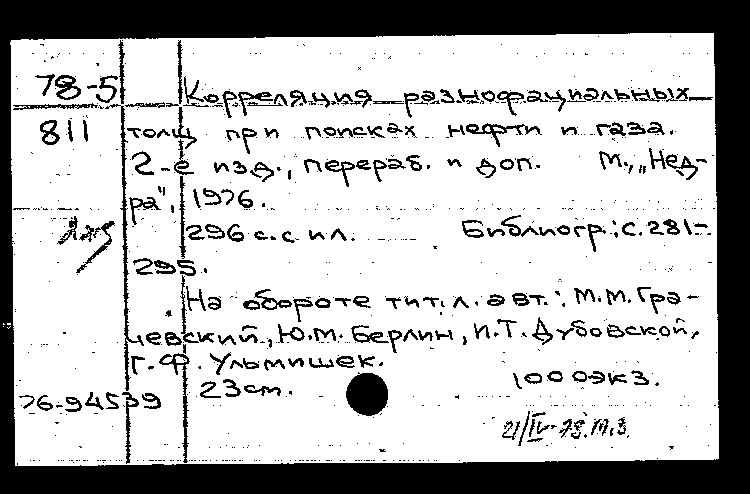 78-5 Корреляция разнофациальных
811 толщ при поисках нефти и газа.
2-е изд., перераб. и доп. М., „Нед-
ра", 1976.
296 с. с ил. Библиогр.: с. 281-
295.
На обороте тит. л. авт.: М.М. Гра-
чевский, Ю.М. Берлин, И.Т. Дубовской,
Г.Ф. Ульмишек.
23 см. 1000 экз.
76-94539
21/IV-78. М.З.